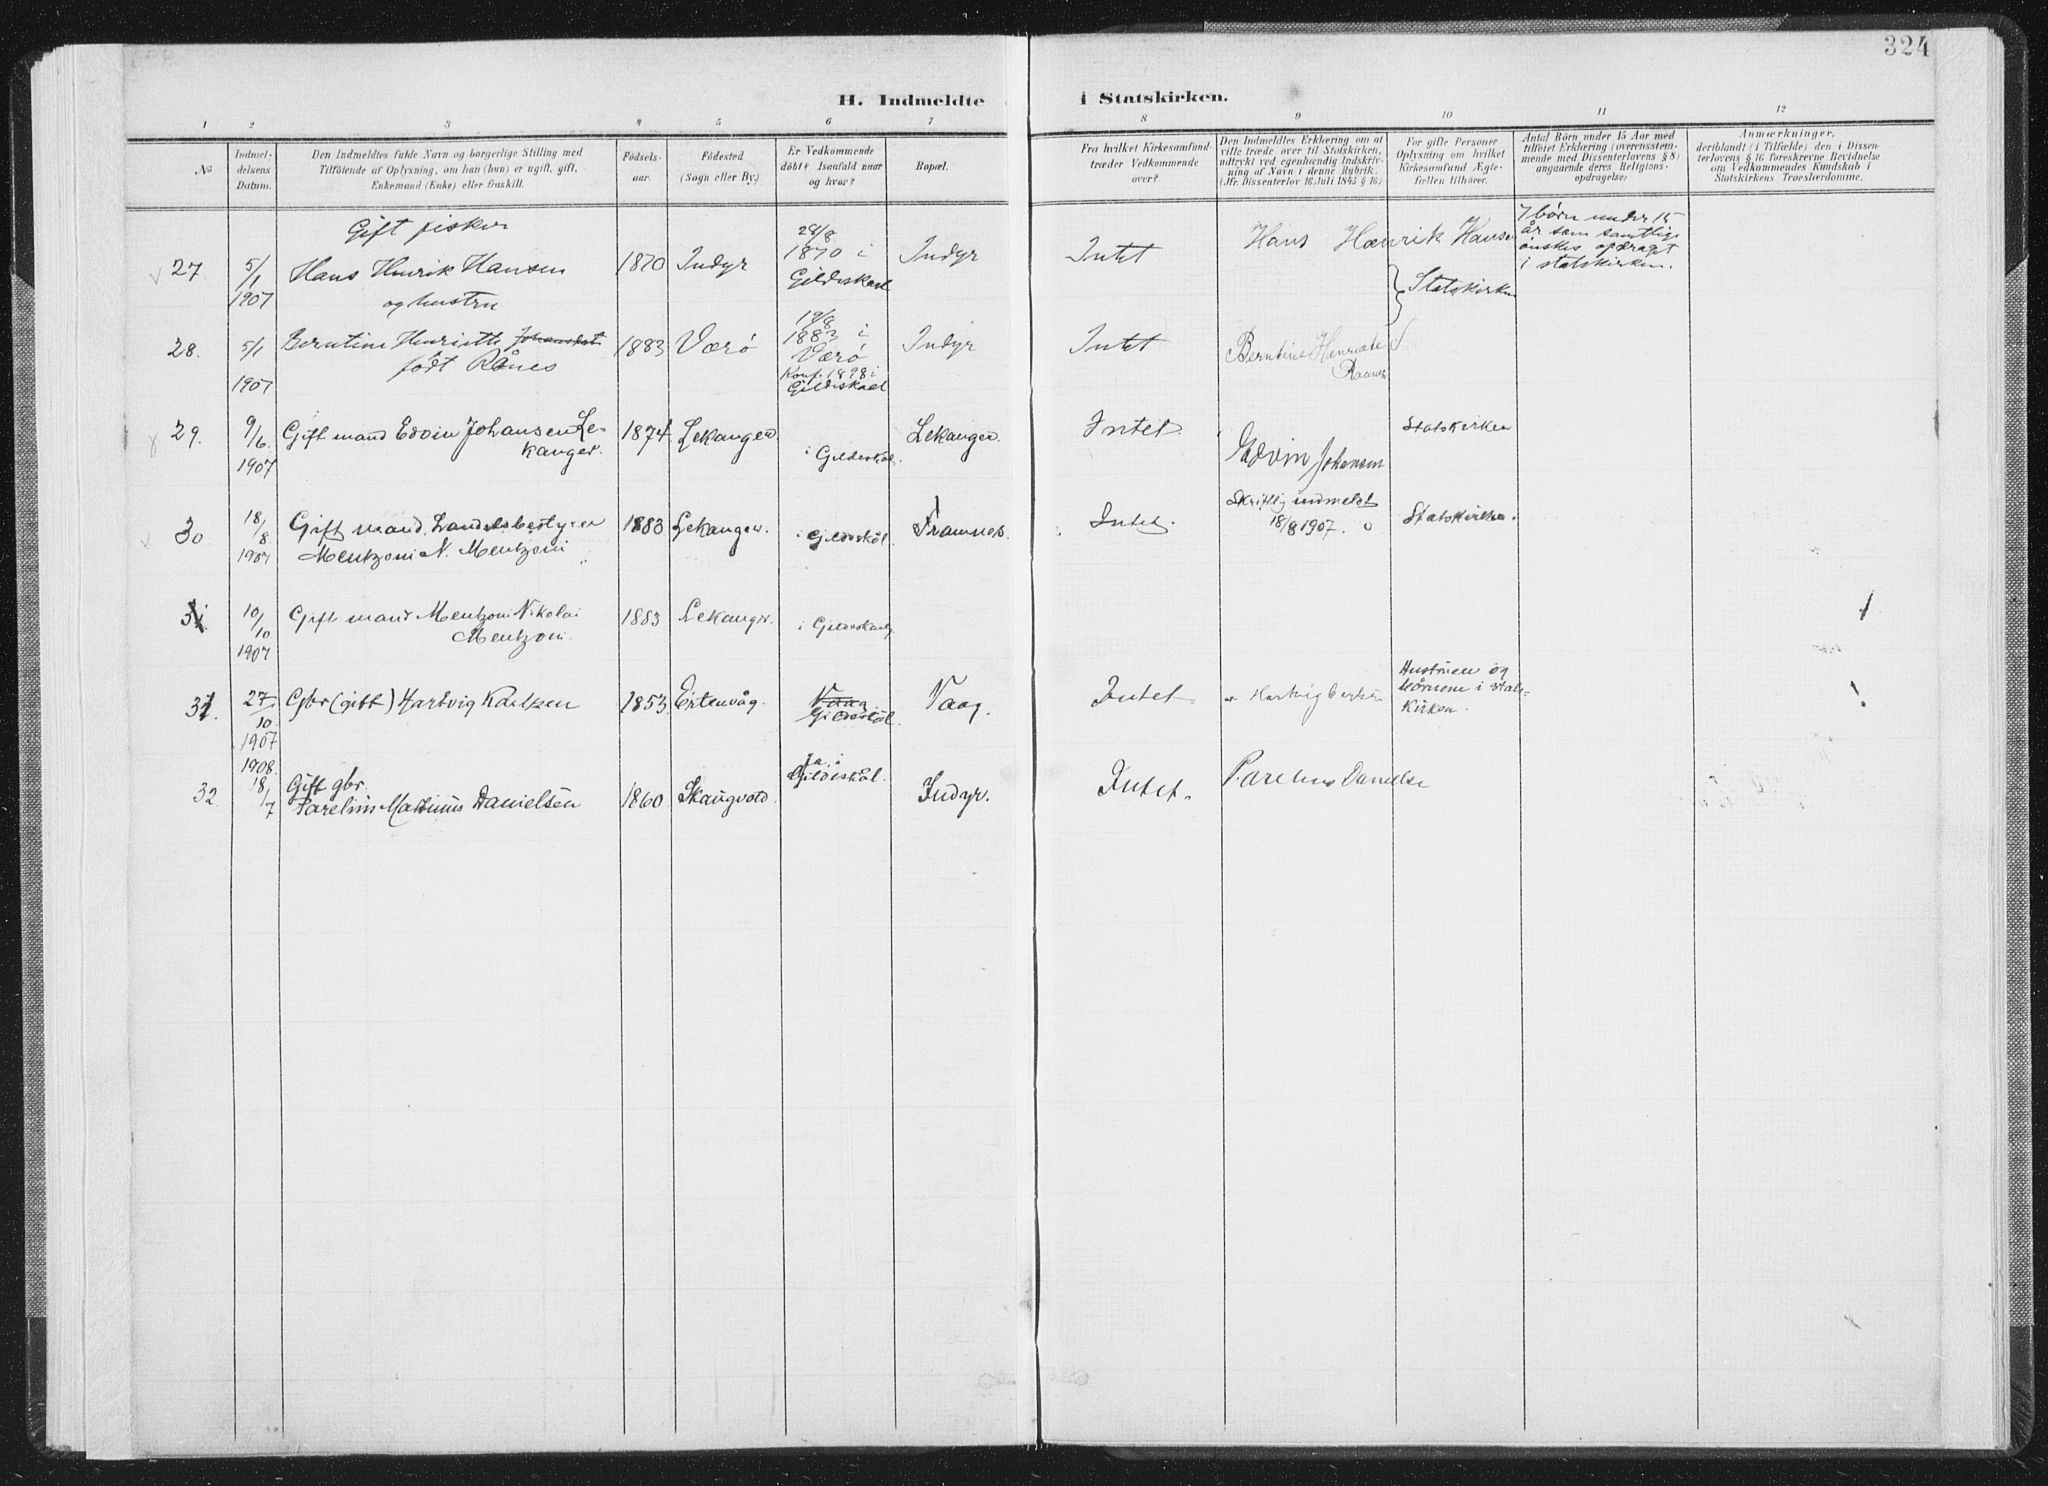 324
H. Indmeldte i Statskirken.
1 2 3 4 5 6 7 8 9 10 11 12
No
Indmel-
delsens
Datum.
Den Indmeldtes fulde Navn og borgerlige Stilling med
Tilföiende af Oplysning, om han (hun) er ugift, gift,
Enkemand (Enke) eller fraskilt.
Födsels-
aar.
Födested
(Sogn eller By.)
Er Vedkommende
döbt? Isaafald naar
og hvor?
Bopæl.
Fra hvilket Kirkesamfund
træder Vedkommende
over?
Den Indmeldtes Erklæring om at
ville træde over til Statskirken,
udtrykt ved egenhændig Indskriv-
ning af Navn i denne Rubrik.
(Jfr. Dissenterlov 16 Juli 1845 § 16.)
For gifte Personer
Oplysning om hvilket
Kirkesamfund Ægte-
fællen tilhörer.
Antal Börn under 15 Aar med
tilföiet Erklæring (overensstem-
mende med Dissenterlovens § 8)
angaaende deres Religions-
opdragelse.
Anmærkninger,
deriblandt (i Tilfælde) den i Dissen-
terlovens § 16 foreskrevne Bevidnelse
om Vedkommendes Kundskab i
Statskirkens Troeslærdomme.
27.
5/1
1907
Gift fisker
Hans Henrik Hansen
og hustru
1870
Indyr
28/8
1870 i
Gildeskaal
Indyr
Intet
Hans Henrik Hansen
Statskirken
7 børn under 15
år som samtlige
ønskes opdraget
i statskirken.
28.
5/1
1907
Berntine Henriette Johansdat
født Rånes
1883
Værø
19/8
1883 i
Værø
Konf. 1898 i
Gildeskaal
Indyr
Intet
Berntine Henriete
29.
9/6
1907
Gift mand Edvin Johansen Le-
kanger.
1874
Lekanger.
i Gildeskål.
Lekanger.
Intet.
Edvin Johansen
Statskirken
30
18/8
1907
Gift mand. Handelsbestyrer
Mentzoni N. Mentzoni
1883
Lekanger.
i Gildeskål
Framnes.
Intet.
Skriftlig indmeldt
18/8 1907.
Statskirken.
31
10/10
1907
Gift mand Mentzoni Nikolai
Mentzoni.
1883
Lekanger.
i Gildeskaal
31
27/10
1907
Gbr (gift) Hartvig Karlsen
1853
Eitervåg.
Vaag
Gildeskål.
Vaag.
Intet
Hustruen og
børnene i stats-
kirken.
32
1908.
18/7
Gift gbr.
Parelius Martinus Danielsen
1860
Skaugvold
Ja, i
Gildeskål.
Indyr.
Intet.
Parelius Danielse